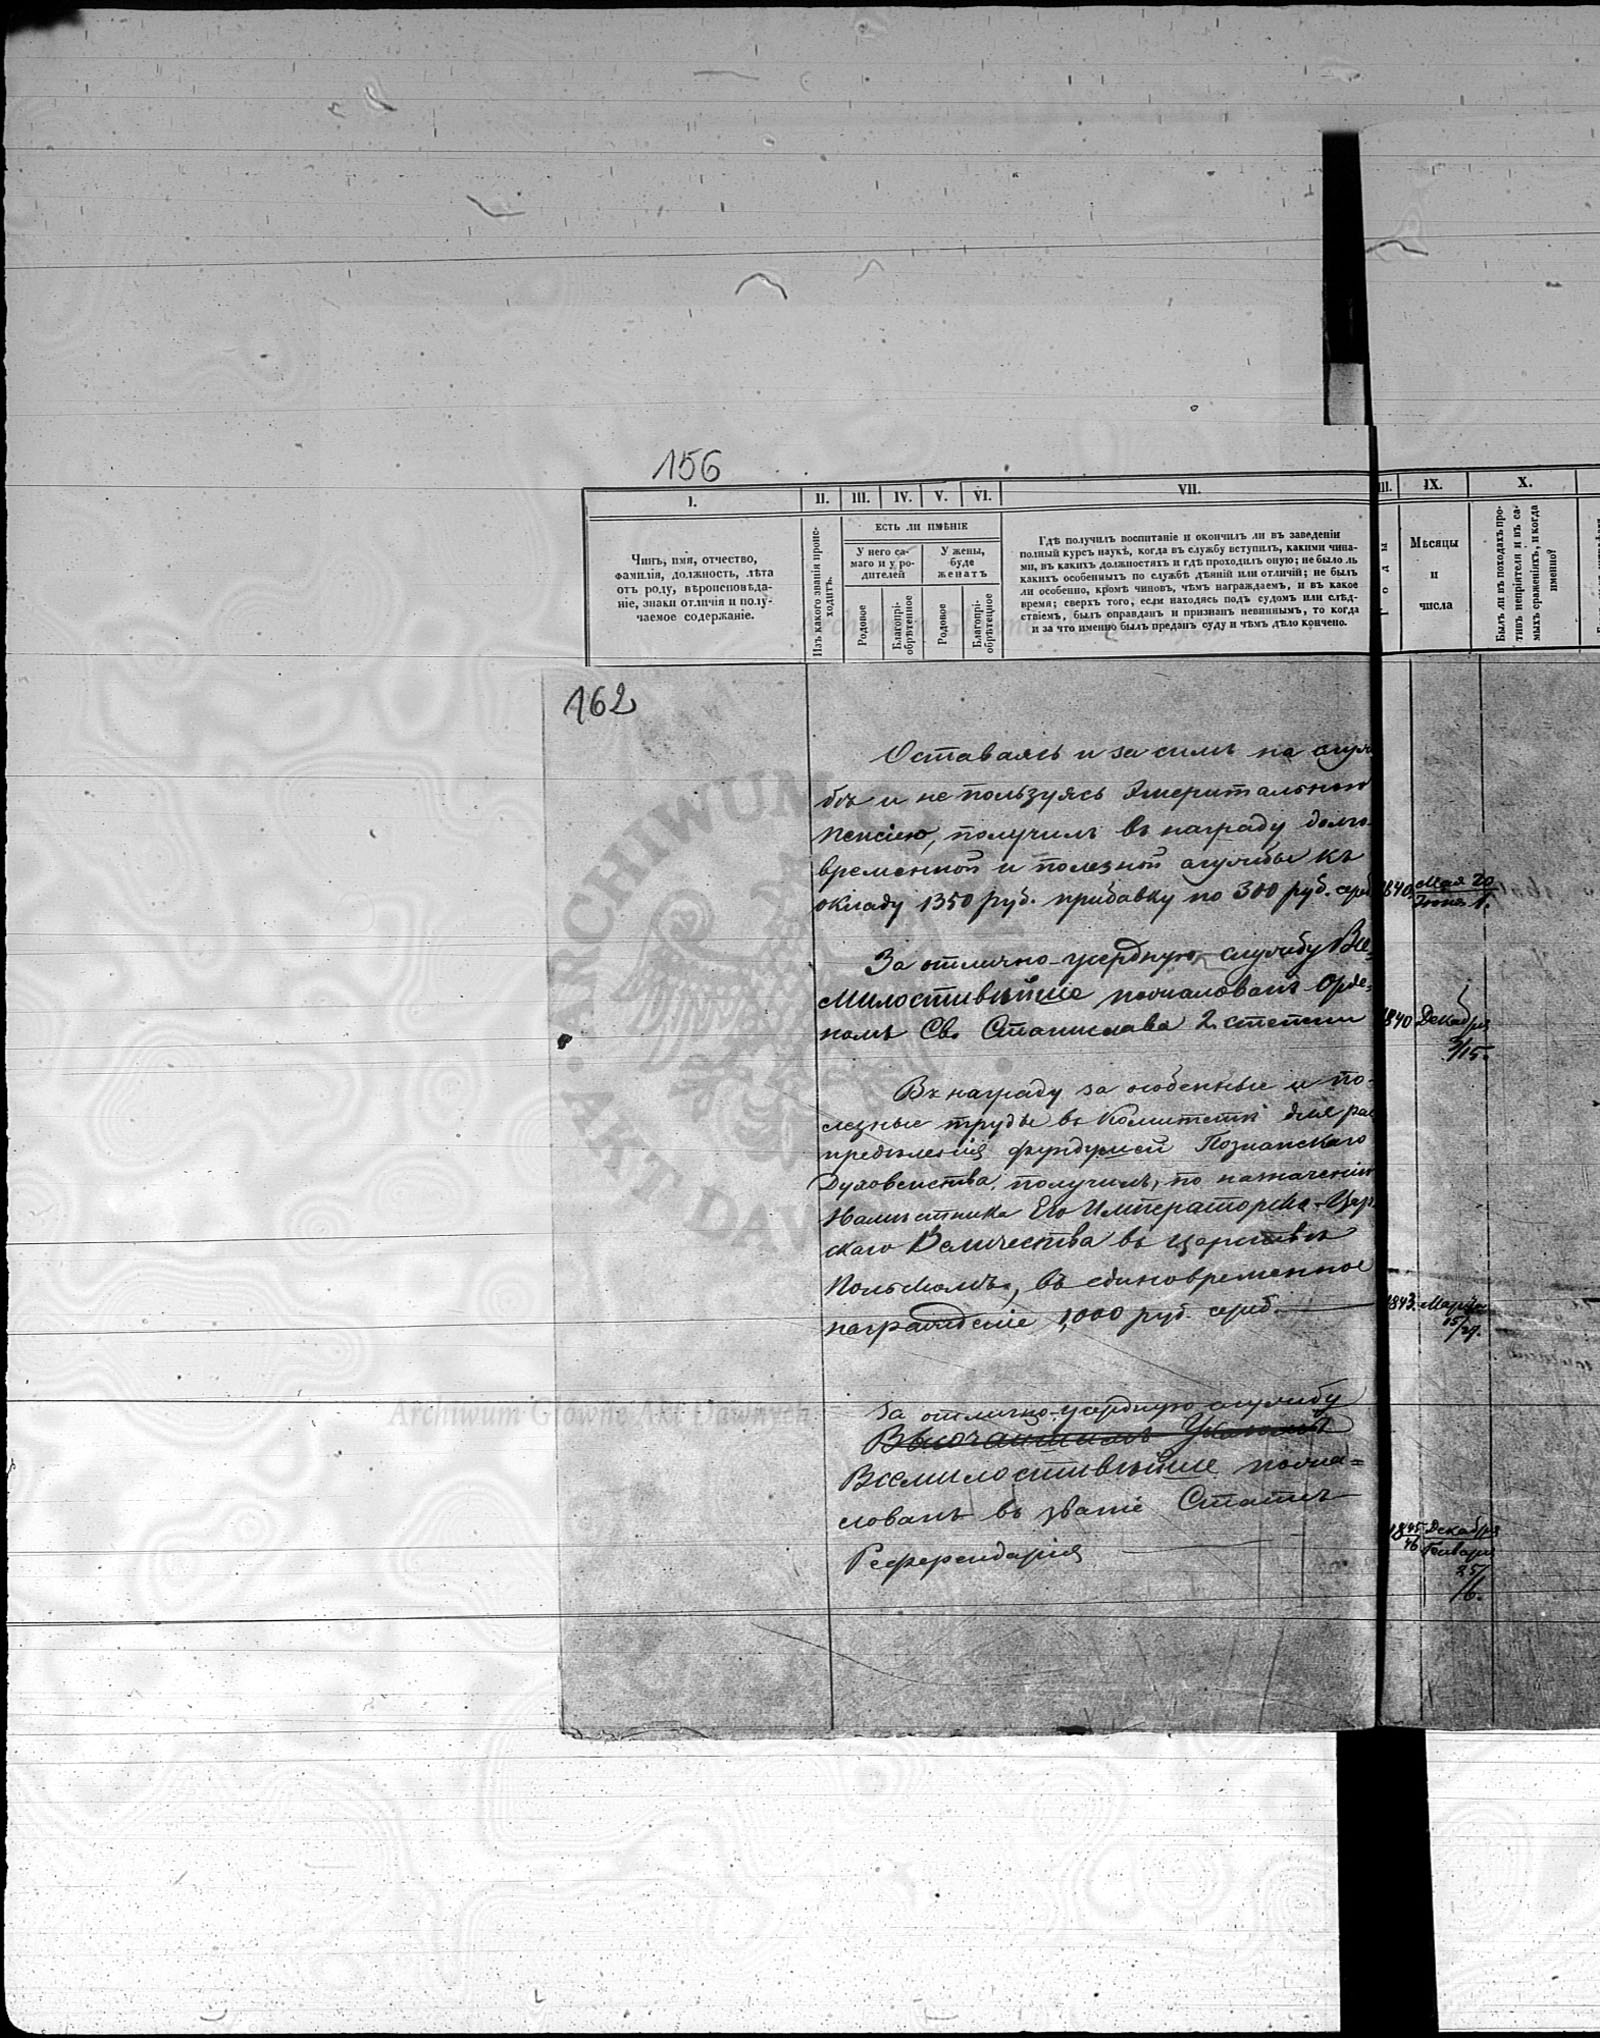 156
I. II. III. IV. V. VI. VII. III. IX. X.
Чинъ, имя, отчество,
фамилія, должность, лѣта
отъ роду, вѣроисповѣда-
ніе, знаки отличія и полу-
чаемое содержаніе.
Изъ какого званія проис-
ходитъ.
ЕСТЬ ЛИ ИМѢНІЕ
У него са-
маго и у ро-
дителей
У жены,
буде
женатъ
Родовое
Благопрі-
обрѣтенное
Родовое
Благопрі-
обрѣтенное
Гдѣ получилъ воспитаніе и окончилъ ли въ заведеніи
полный курсъ наукъ, когда въ службу вступилъ, какими чина-
ми, въ какихъ должностяхъ и гдѣ проходилъ оную; не было ль
какихъ особенныхъ по службѣ дѣяній или отличій; не былъ
ли особенно, кромѣ чиновъ, чѣмъ награждаемъ, и въ какое
время; сверхъ того, если находясь подъ судомъ или слѣд-
ствіемъ, былъ оправданъ и признанъ невиннымъ, то когда
и за что именно былъ преданъ суду и чѣмъ дѣло кончено.
Годы
Мѣсяцы
и
числа
Былъ ли въ походахъ про-
тивъ непріятеля и въ са-
мыхъ сраженіяхъ, и когда
именно?
162
Оставаясь и за симъ на служ
бѣ и не пользуясь Эмеритальною
пенсіею, получилъ въ награду долго-
временной и полезной службы къ
окладу 1350 руб. прибавку по 300 руб. сер. 1840. Мая 20
Іюня 1.
За отлично-усердную службу Все-
милостивѣйше пожалованъ Орде-
номъ Св. Станислава 2. степени 1840 Декабря
3/15.
Въ награду за особенные и по-
лезные труды въ Комитетѣ для рас
предѣленія фундушей Познанскаго
Духовенства, получилъ, по назначенію
Намѣстника Его Императорско-Цар-
скаго Величества въ Царствѣ
Польскомъ, въ единовременное
награжденіе 1,000 руб. сереб. 1843. Марта
15/27.
За отлично-усердную службу
Высочайшимъ Указомъ
Всемилостивѣйше пожа=
лованъ въ званіе Статсъ-
Референдарія 1845/46 Декабря
Генваря
25/
/6.
ARCHIWUM GŁÓWNE AKT DAWNYCH
Archiwum Główne Akt Dawnych